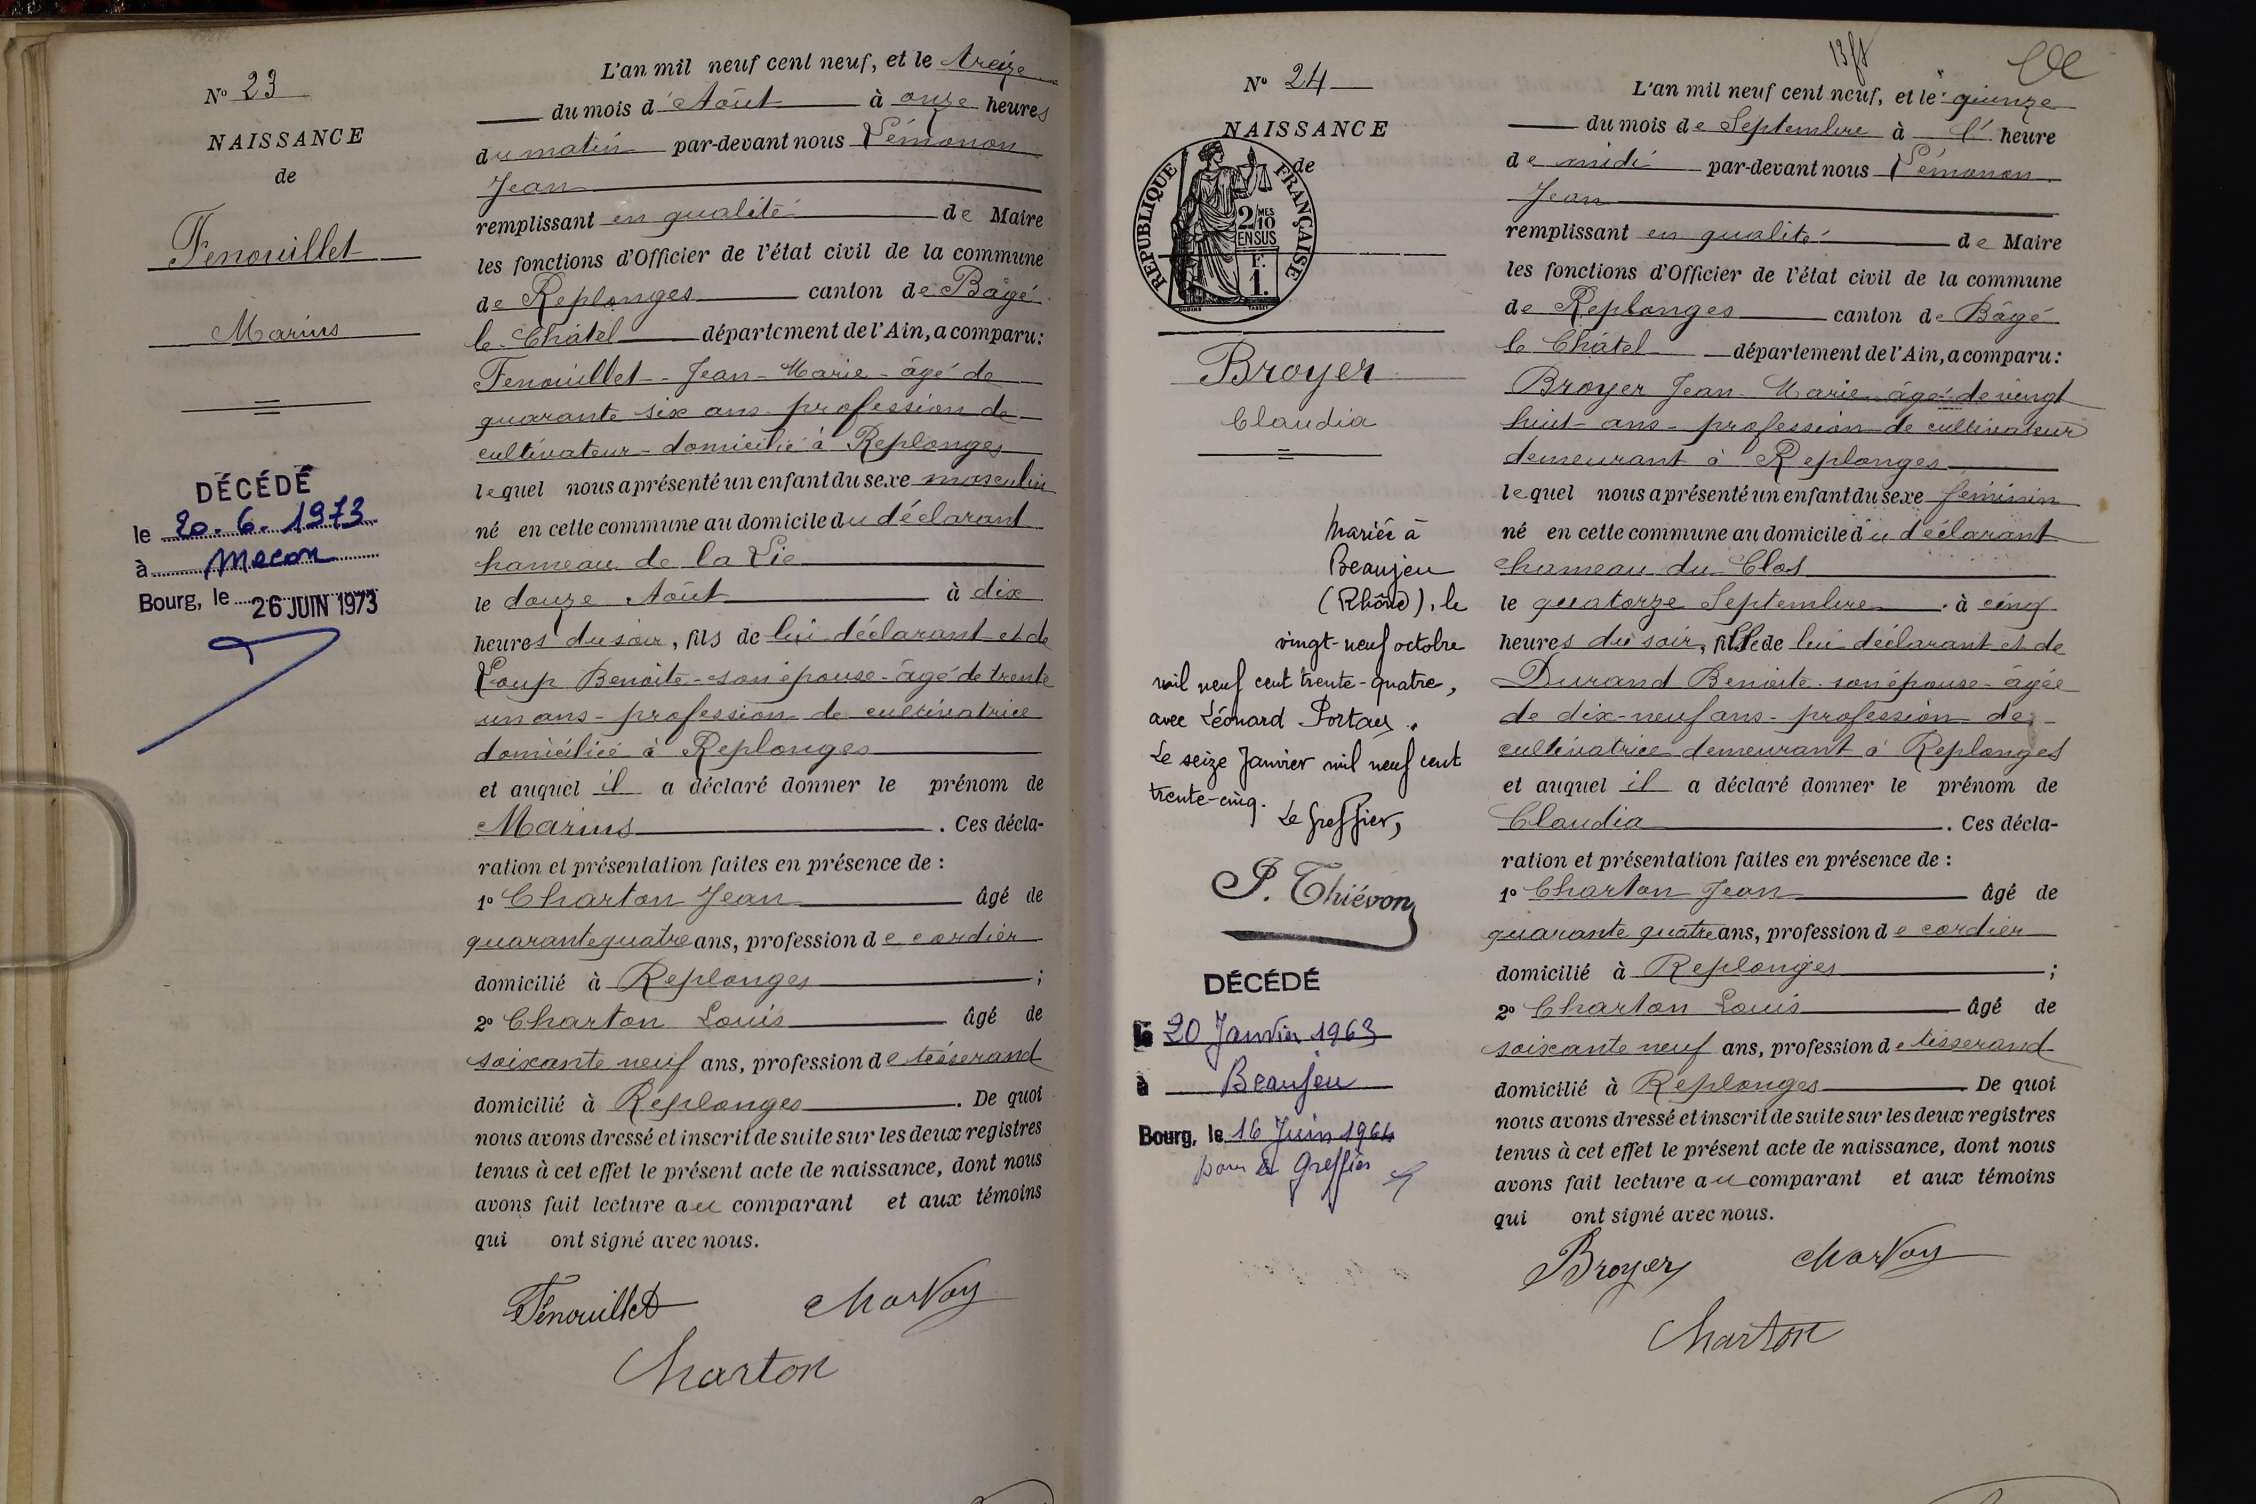 N° 23
NAISSANCE
de
Fenouillet
Marius
DÉCÉDÉ
le 20.6.1973
à Macon
Bourg, le 26 JUIN 1973
L'an mil neuf cent neuf, et le treize
du mois d'Août à onze heures
du matin par-devant nous
Jean
remplissant en qualité de Maire
les fonctions d'Officier de l'état civil de la commune
de Replonges canton de Bâgé
le Châtel département de l'Ain, a comparu:
Fenouillet - Jean - Marie - âgé de
quarante six ans profession de
cultivateur - domicilié à Replonges
lequel nous a présenté un enfant du sexe masculin
né en cette commune au domicile du déclarant
hameau de la
le douze Août à dix
heures du soir, fils de lui déclarant et de
Loup Benoite - son épouse - âgé de trente
un ans - profession de cultivatrice
domiciliée à Replonges
et auquel il a déclaré donner le prénom de
Marius. Ces décla-
ration et présentation faites en présence de :
1° Charton Jean âgé de
quarante quatre ans, profession de cordier
domicilié à Replonges ;
2° Charton Louis âgé de
soixante neuf ans, profession de tisserand
domicilié à Replonges. De quoi
nous avons dressé et inscrit de suite sur les deux registres
tenus à cet effet le présent acte de naissance, dont nous
avons fait lecture au comparant et aux témoins
qui ont signé avec nous.
Fenouillet
Charton
N° 24
NAISSANCE
de
RÉPUBLIQUE FRANÇAISE
2/10 MES
EN SUS
F.
1.
Broyer
Claudia
Mariée à
Beaujeu
(Rhône), le
vingt-neuf octobre
mil neuf cent trente-quatre,
avec Léonard
Le seize Janvier mil neuf cent
trente-cinq.
Le Greffier,
P. Thiévon
DÉCÉDÉ
le 20 Janvier 1963
à Beaujeu
Bourg, le 16 Juin 1964
pour le Greffier
L'an mil neuf cent neuf, et le quinze
du mois de Septembre à l' heure
de midi par-devant nous
Jean
remplissant en qualité de Maire
les fonctions d'Officier de l'état civil de la commune
de Replonges canton de Bâgé
le Châtel département de l'Ain, a comparu:
Broyer Jean Marie âgé de vingt
huit ans - profession de cultivateur
demeurant à Replonges
lequel nous a présenté un enfant du sexe féminin
né en cette commune au domicile du déclarant
hameau du Clos
le quatorze Septembre à cinq
heures du soir, fille de lui déclarant et de
Durand Benoite son épouse - âgée
de dix-neuf ans - profession de
cultivatrice demeurant à Replonges
et auquel il a déclaré donner le prénom de
Claudia. Ces décla-
ration et présentation faites en présence de :
1° Charton Jean âgé de
quarante quatre ans, profession de cordier
domicilié à Replonges ;
2° Charton Louis âgé de
soixante neuf ans, profession de tisserand
domicilié à Replonges De quoi
nous avons dressé et inscrit de suite sur les deux registres
tenus à cet effet le présent acte de naissance, dont nous
avons fait lecture au comparant et aux témoins
qui ont signé avec nous.
Broyer
Charton